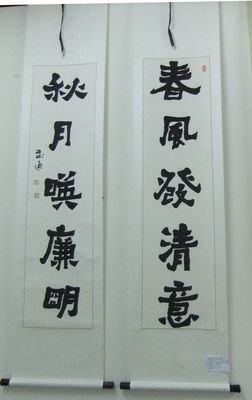 春風發清意
秋月暎廉明